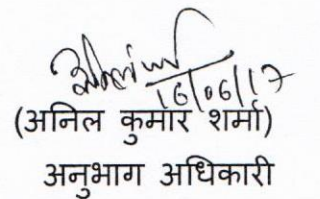 16/06/17
(अनिल कुमार शर्मा)
अनुभाग अधिकारी